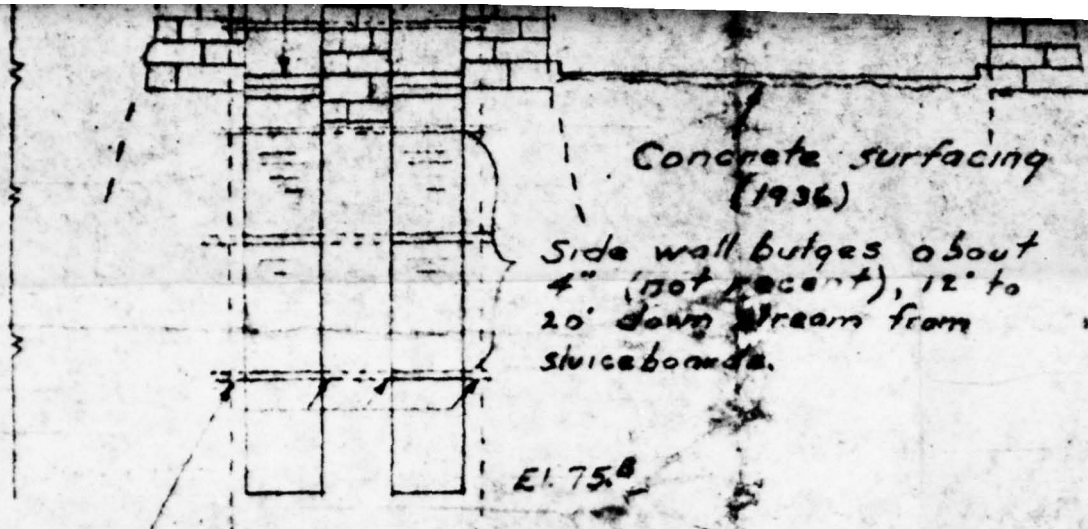 Concrete surfacing
(1936)
Side wall bulges about
4" (not recent), 12' to
20' down stream from
sluiceboards.
El. 75.8